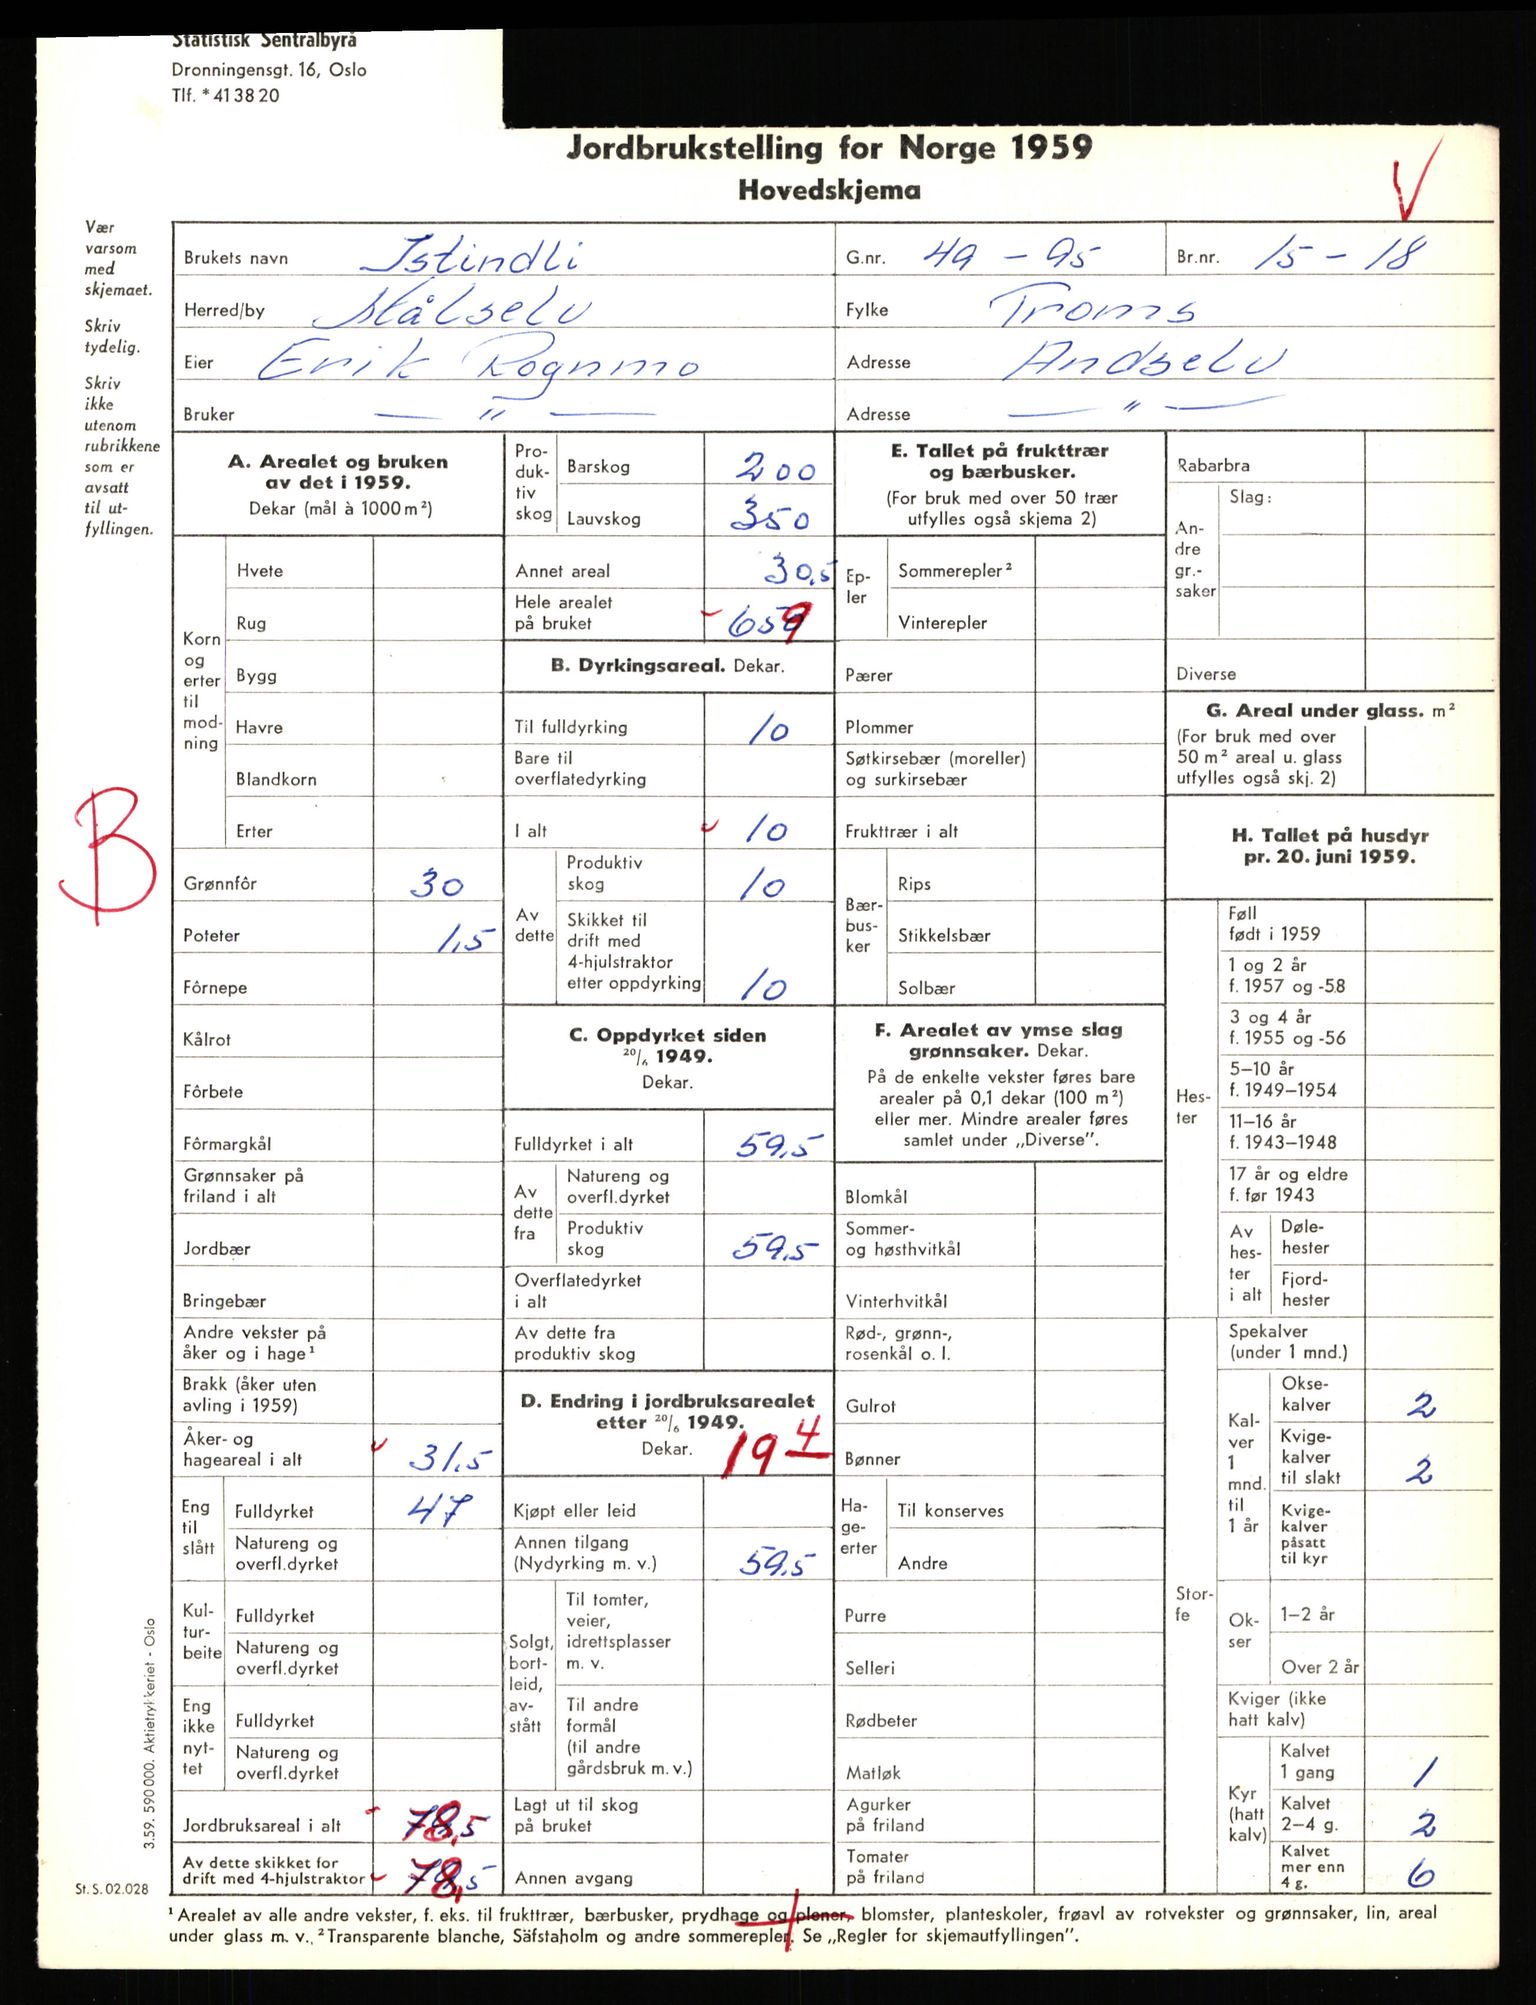 Statistisk Sentralbyrå
Dronningensgt. 16, Oslo
Tlf. * 41 38 20
Jordbrukstelling for Norge 1959
Hovedskjema
V
Vær
varsom
med
skjemaet.
Skriv
tydelig.
Skriv
ikke
utenom
rubrikkene
som er
avsatt
til ut-
fyllingen.
Brukets navn Istindli G.nr. 49 – 95 Br.nr. 15 – 18
Herred/by Målselv Fylke Troms
Eier Erik Rognmo Adresse Andselv
Bruker — " — Adresse — " —
A. Arealet og bruken
av det i 1959.
Dekar (mål à 1000 m²)
Korn
og
erter
til
mod-
ning
Hvete
Rug
Bygg
Havre
Blandkorn
Erter
B
Grønnfôr 30
Poteter 1,5
Fôrnepe
Kålrot
Fôrbete
Fôrmargkål
Grønnsaker på
friland i alt
Jordbær
Bringebær
Andre vekster på
åker og i hage¹
Brakk (åker uten
avling i 1959)
Åker- og
hageareal i alt 31,5
Eng
til
slått
Fulldyrket 47
Natureng og
overfl.dyrket
Kul-
tur-
beite
Fulldyrket
Natureng og
overfl.dyrket
Eng
ikke
nyt-
tet
Fulldyrket
Natureng og
overfl.dyrket
Jordbruksareal i alt 78,5
Av dette skikket for
drift med 4-hjulstraktor 78,5
Pro-
duk-
tiv
skog
Barskog 200
Lauvskog 350
Annet areal 30,5
Hele arealet
på bruket 659
B. Dyrkingsareal. Dekar.
Til fulldyrking 10
Bare til
overflatedyrking
I alt 10
Av
dette
Produktiv
skog 10
Skikket til
drift med
4-hjulstraktor
etter oppdyrking 10
C. Oppdyrket siden
20/6 1949.
Dekar.
Fulldyrket i alt 59,5
Av
dette
fra
Natureng og
overfl.dyrket
Produktiv
skog 59,5
Overflatedyrket
i alt
Av dette fra
produktiv skog
D. Endring i jordbruksarealet
etter 20/6 1949.
Dekar. 19 4
Kjøpt eller leid
Annen tilgang
(Nydyrking m. v.) 59,5
Solgt,
bort-
leid,
av-
stått
Til tomter,
veier,
idrettsplasser
m. v.
Til andre
formål
(til andre
gårdsbruk m. v.)
Lagt ut til skog
på bruket
Annen avgang
E. Tallet på frukttrær
og bærbusker.
(For bruk med over 50 trær
utfylles også skjema 2)
Ep-
ler
Sommerepler²
Vinterepler
Pærer
Plommer
Søtkirsebær (moreller)
og surkirsebær
Frukttrær i alt
Bær-
bus-
ker
Rips
Stikkelsbær
Solbær
F. Arealet av ymse slag
grønnsaker. Dekar.
På de enkelte vekster føres bare
arealer på 0,1 dekar (100 m²)
eller mer. Mindre arealer føres
samlet under „Diverse".
Blomkål
Sommer-
og høsthvitkål
Vinterhvitkål
Rød-, grønn-,
rosenkål o. l.
Gulrot
Bønner
Ha-
ge-
erter
Til konserves
Andre
Purre
Selleri
Rødbeter
Matløk
Agurker
på friland
Tomater
på friland
Rabarbra
An-
dre
gr.-
saker
Slag:
Diverse
G. Areal under glass. m²
(For bruk med over
50 m² areal u. glass
utfylles også skj. 2)
H. Tallet på husdyr
pr. 20. juni 1959.
Hes-
ter
Føll
født i 1959
1 og 2 år
f. 1957 og -58
3 og 4 år
f. 1955 og -56
5–10 år
f. 1949–1954
11–16 år
f. 1943–1948
17 år og eldre
f. før 1943
Av
hes-
ter
i alt
Døle-
hester
Fjord-
hester
Stor-
fe
Spekalver
(under 1 mnd.)
Kal-
ver
1
mnd.
til
1 år
Okse-
kalver 2
Kvige-
kalver
til slakt 2
Kvige-
kalver
påsatt
til kyr
Ok-
ser
1–2 år
Over 2 år
Kviger (ikke
hatt kalv)
Kyr
(hatt
kalv)
Kalvet
1 gang 1
Kalvet
2–4 g. 2
Kalvet
mer enn
4 g. 6
3.59. 590 000. Aktietrykkeriet - Oslo
St. S. 02.028
¹ Arealet av alle andre vekster, f. eks. til frukttrær, bærbusker, prydhage og plener, blomster, planteskoler, frøavl av rotvekster og grønnsaker, lin, areal
under glass m. v. ² Transparente blanche, Säfstaholm og andre sommerepler. Se „Regler for skjemautfyllingen".